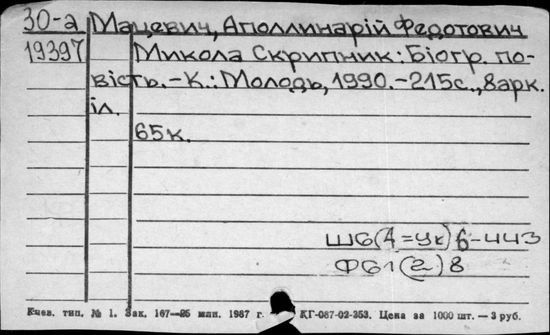 30-а Мацевич, Аполлинарій Федотович
19397 Микола Скрипник: Біогр. по-
вість. – К.: Молодь, 1990. – 215с., 8арк.
іл.
65к.
Ш6(4=Ук)6-443
ФБ1(2)8
Киев. тип. № 1. Зак. 167—25 млн. 1987 г. КГ-087-02-353. Цена за 1000 шт. — 3 руб.